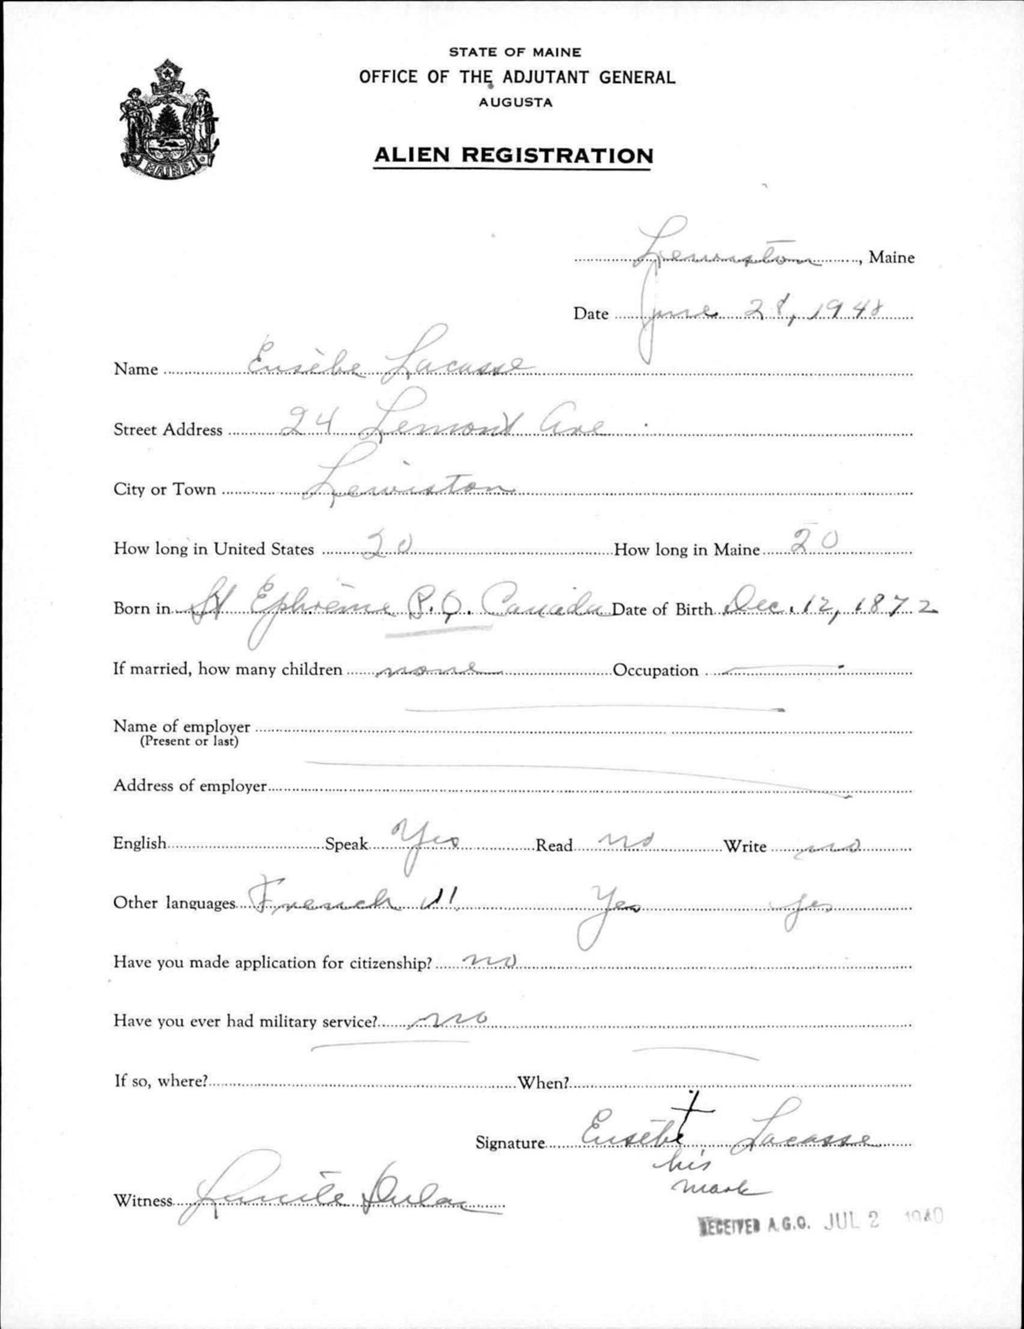 STATE OF MAINE
OFFICE OF THE ADJUTANT GENERAL
AUGUSTA
ALIEN REGISTRATION
MAINE
Lewiston, Maine
Date June 28, 1940
Name Eusèbe Lacasse
Street Address 24 Lemont Ave
City or Town Lewiston
How long in United States 20 How long in Maine 20
Born in St Ephrème P.Q. Canada Date of Birth Dec. 12, 1872
If married, how many children none Occupation —
Name of employer
(Present or last)
Address of employer
English Speak Yes Read no Write no
Other languages French " Yes yes
Have you made application for citizenship? no
Have you ever had military service? no
If so, where? When?
Signature Eusèbe Lacasse
his
mark
Witness
RECEIVED A.G.O. JUL 2 1940